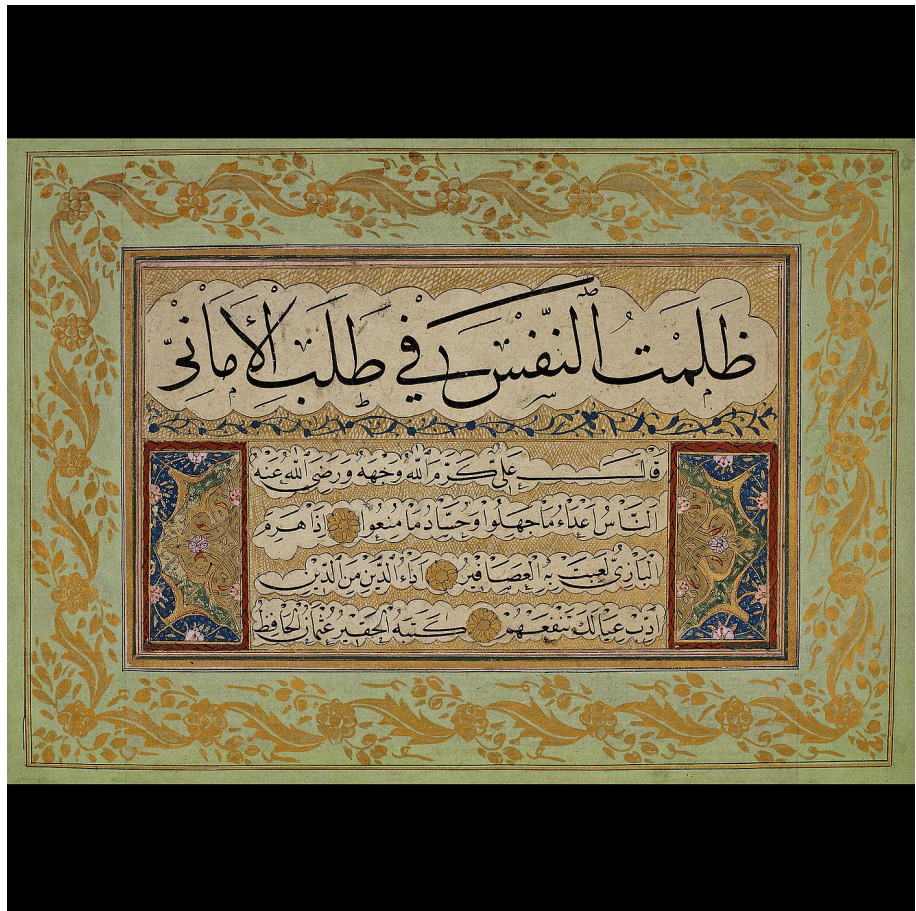 ظَلَمْتُ النَّفْسَ فِي طَلَبِ الْأَمَانِيْ
قال علي كَرَّمَ اللهُ وَجْهَهُ وَرَضِيَ اللهُ عَنْهُ
اَلنَّاسُ اَعْدَاءُ مَا جَهِلُوا وَحُسَّادُ مَا مُنِعُوا اِذَا هَرِمَ
الْبَازِيُّ لَعِبَتْ بِهِ الْعَصَافِيرُ اَدَاءُ الدَّيْنِ مِنَ الدِّينِ
اَدِّبْ عِيَالَكَ تَنْفَعْهُمْ كَتَبَهُ الْحَقِيرُ عُثْمَانُ الْحَافِظُ